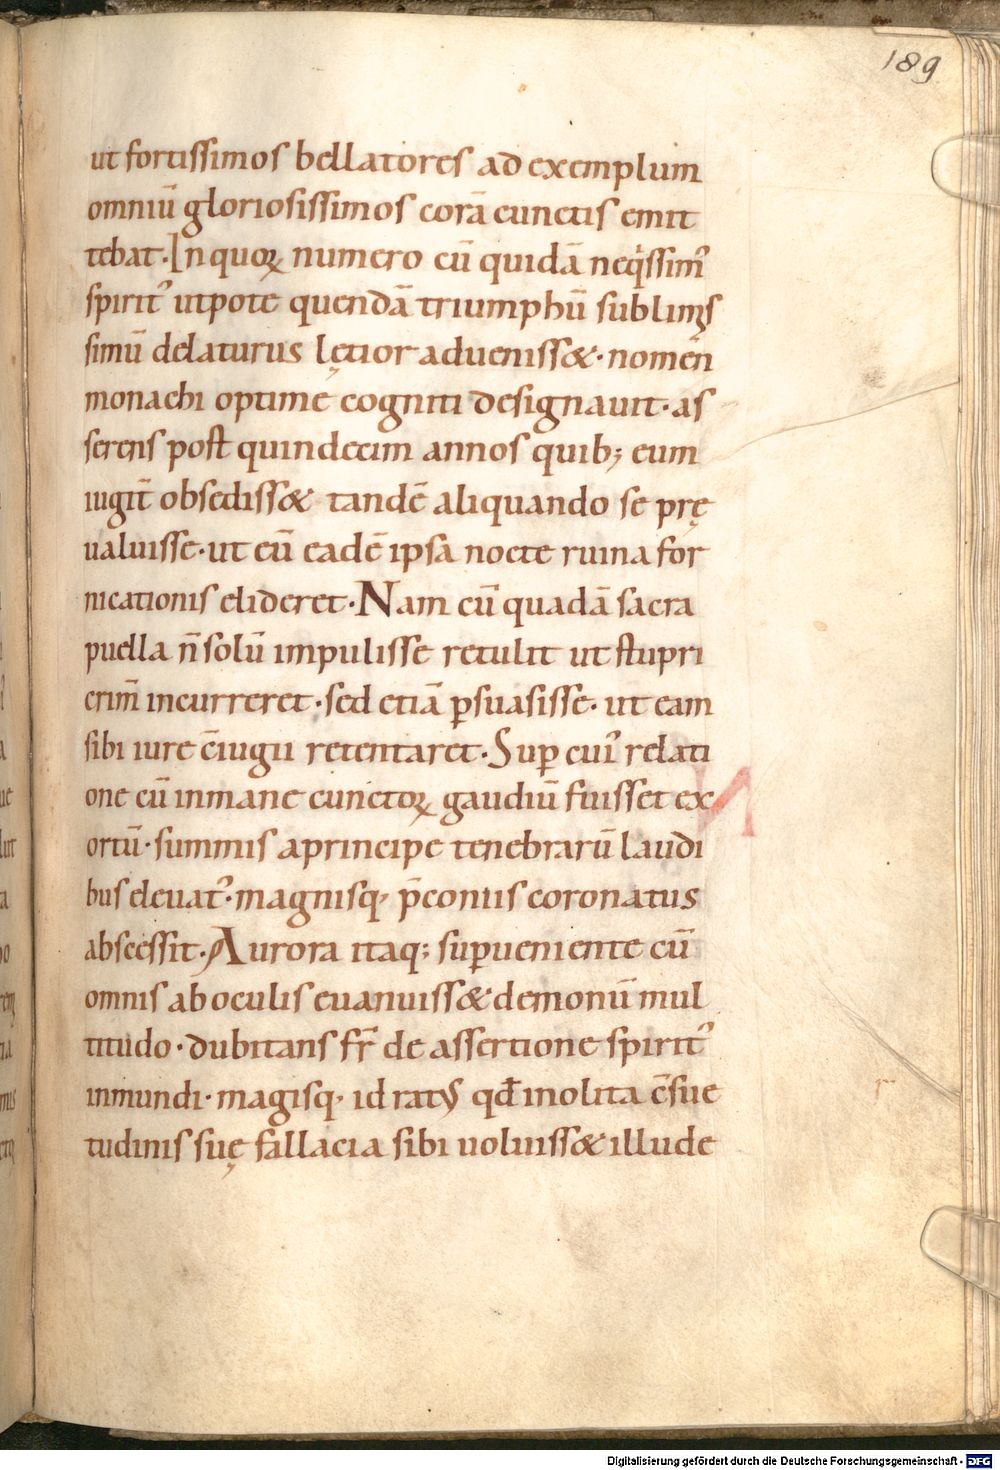 189
ut fortissimos bellatores ad exemplum
omniū gloriosissimos corā cunctis emit
tebat. In quoꝝ numero cū quidā neq̇ssim᾽
spirit᾽ utpote quendā triumphū sublimis
simū delaturus lętior adueniss&. nomen
monachi optime cogniti designauit. as
serens post quindecim annos quib; eum
iugit̄ obsediss& tandē aliquando se prę
ualuisse. ut eū eadē ipsa nocte ruina for
nicationis elideret. Nam cū quadā sacra
puella n̄ solū impulisse retulit ut stupri
crim̄ incurreret. sed etiā ꝑsuasisse. ut eam
sibi iure c̄iugii retentaret. Suꝑ cui᾽ relati
one cū inmane cunctoꝝ gaudiū fuisset ex
ortū. summis a principe tenebrarū laudi
bus eleuat᾽. magnisq; p̄coniis coronatus
abscessit. Aurora itaq; suꝑueniente cū
omnis ab oculis euanuiss& demonū mul
titudo. dubitans fr̄ de assertione spirit᾽
inmundi. magisq; id ratus qđ inolita c̄sue
tudinis suę fallacia sibi uoluiss& illude
Digitalisierung gefördert durch die Deutsche Forschungsgemeinschaft - DFG